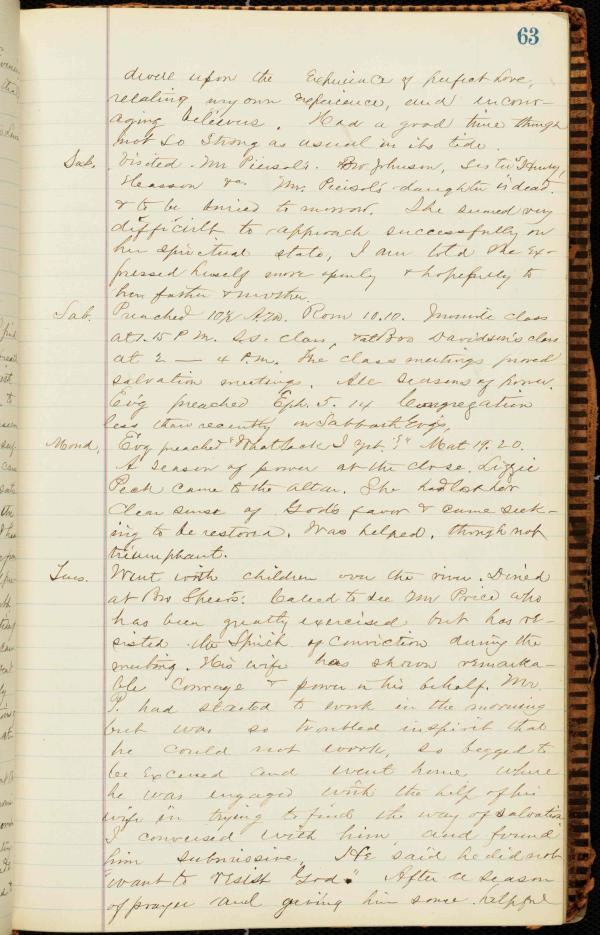 63
dwell upon the Experience of perfect Love,
relating my own experience, and incour-
aging believers. Had a good time though
not so strong as usual in its tide.
Sab. Visited Mr Piersol's. Bro Johnson, Sister
Heasson &c. Mr. Piersol's daughter is dead.
& to be buried to morrow. She seemed very
difficult to approach successfully on
her spiritual state, I am told she ex-
pressed herself more openly & hopefully to
her father & mother.
Sab. Preached 10½ A.M. Rom 10.10. class
at 1.15 P.M. S.s. class, & at Bro Davidson's class
at 2 — 4 P.M. The class meetings proved
salvation meetings. All seasons of power.
Ev'g preached Eph. 5. 14 Congregation
less than recently on Sabbath Ev'gs,
Mond, Ev'g preached "What lack I yet?" Mat 19. 20.
A season of power at the close. Lizzie
Peck came to the altar. She had lost her
clear sense of God's favor & came seek-
ing to be restored. Was helped, though not
triumphant.
Tues. Went with children over the river. Dined
at Bro Sheers. Called to see Mr Price who
has been greatly exercised but has re-
sisted the Spirit of Conviction during the
meeting. His wife has shown remarka-
ble Courage & power in his behalf. Mr.
P. had started to work in the morning
but was so troubled in spirit that
he could not work, so begged to
be excused and went home where
he was engaged with the help of his
wife in trying to find the way of salvation
I conversed with him, and found
him submissive, He said he did not
"want to resist God." After a season
of prayer and giving him some helpful